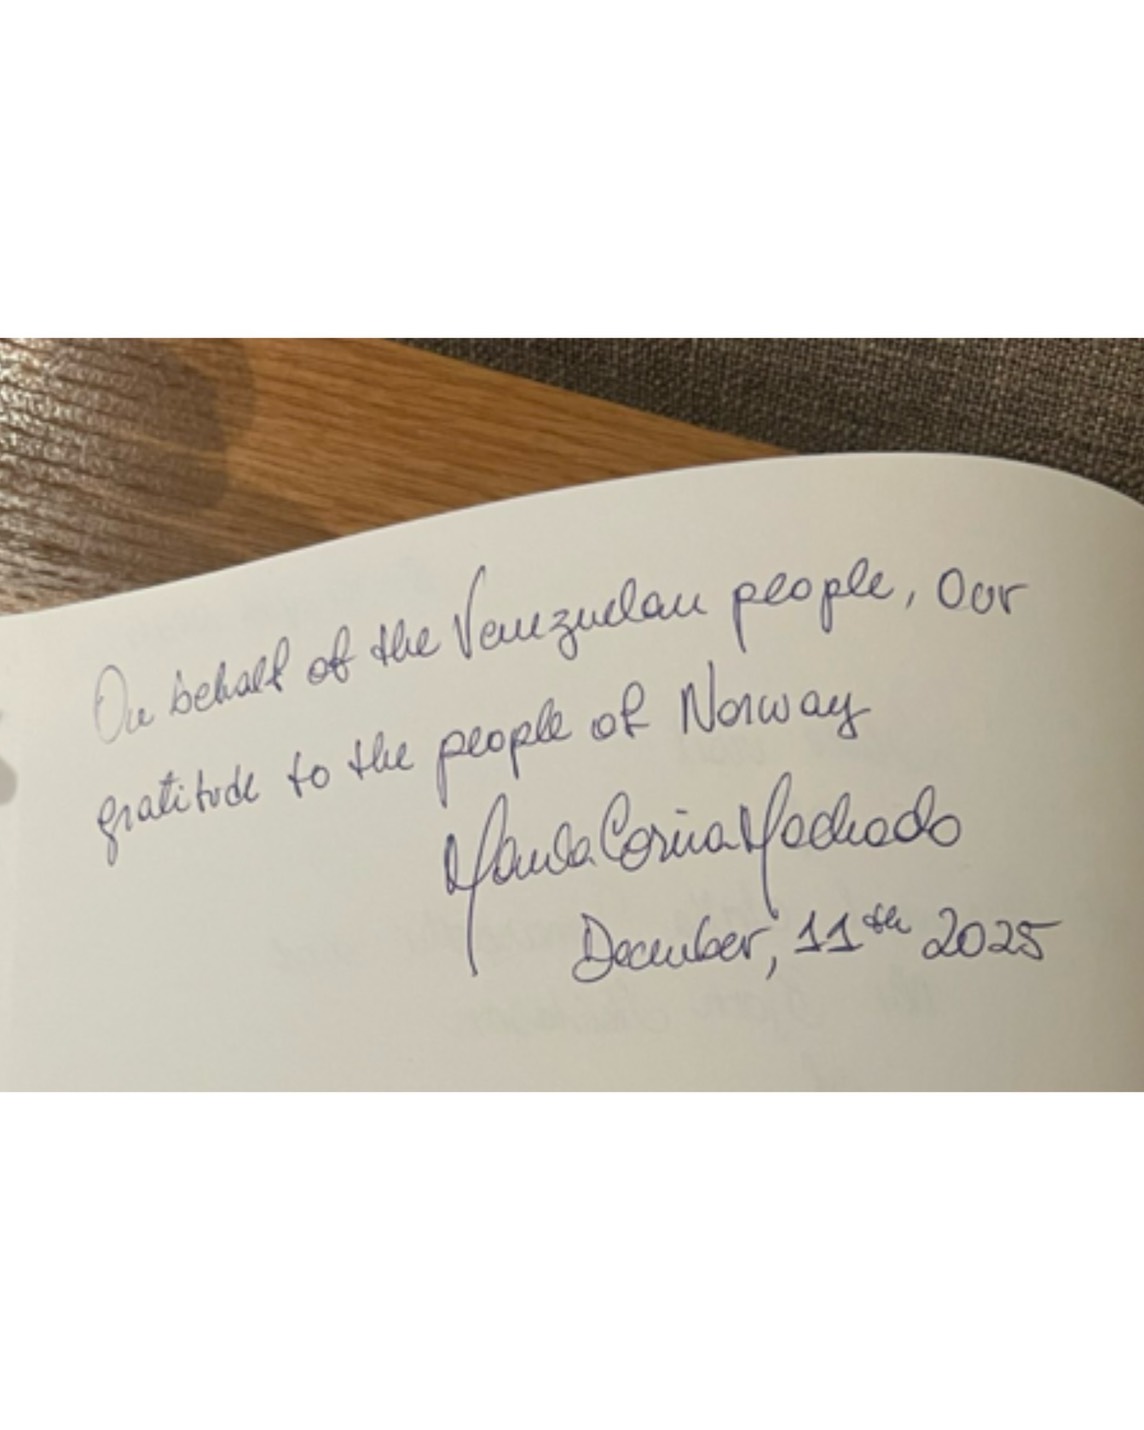 On behalf of the Venezuelan people, Our
gratitude to the people of Norway
María Corina Machado
December, 11th 2025